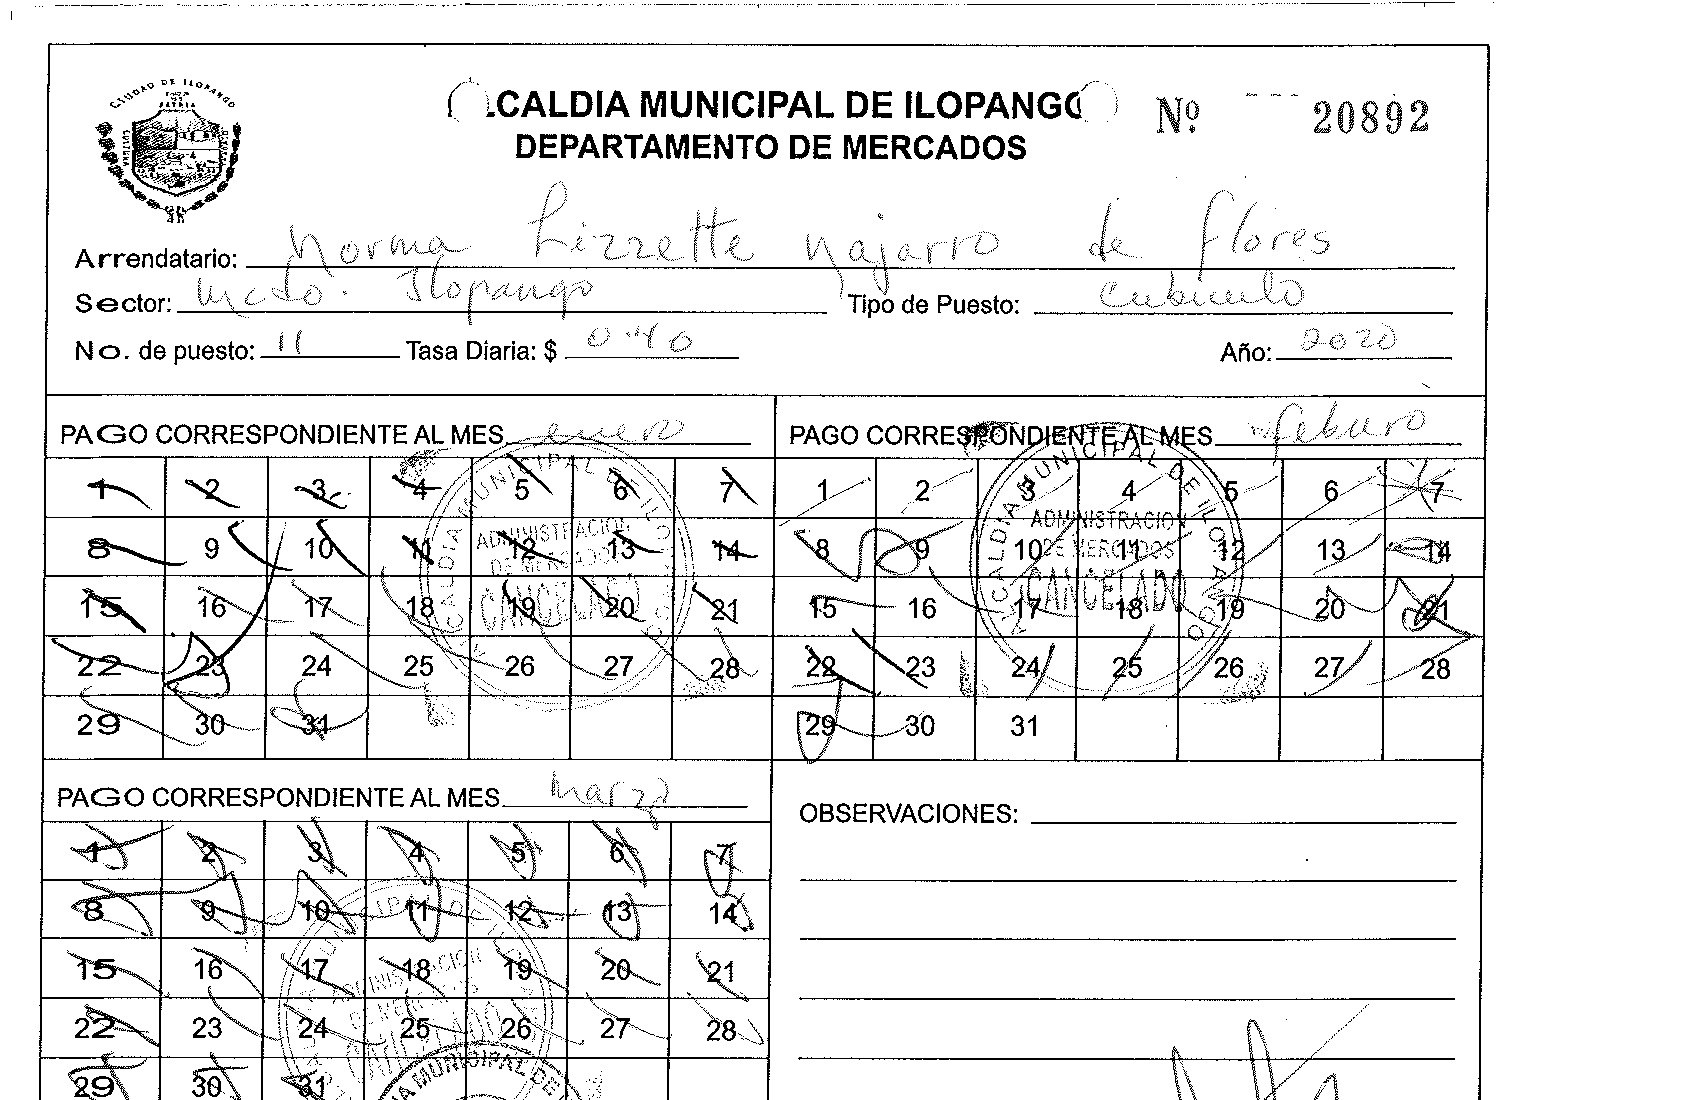 CIUDAD DE ILOPANGO
PATRIA
LCALDIA MUNICIPAL DE ILOPANGO
Nº 20892
DEPARTAMENTO DE MERCADOS
Arrendatario: Norma Lizzette Najarro de Flores
Sector: Mcdo. Ilopango Tipo de Puesto: Cubiculo
No. de puesto: 11 Tasa Diaria: $ 0.40 Año: 2020
PAGO CORRESPONDIENTE AL MES enero
1 2 3 4 5 6 7
8 9 10 11 12 13 14
15 16 17 18 19 20 21
22 23 24 25 26 27 28
29 30 31
ALCALDIA MUNICIPAL DE ILOPANGO
ADMINISTRACION
DE MERCADOS
CANCELADO
PAGO CORRESPONDIENTE AL MES feburo
1 2 3 4 5 6 7
8 9 10 11 12 13 14
15 16 17 18 19 20 21
22 23 24 25 26 27 28
29 30 31
ALCALDIA MUNICIPAL DE ILOPANGO
ADMINISTRACION
DE MERCADOS
CANCELADO
PAGO CORRESPONDIENTE AL MES marzo
1 2 3 4 5 6 7
8 9 10 11 12 13 14
15 16 17 18 19 20 21
22 23 24 25 26 27 28
29 30 31
ADMINISTRACION
DE MERCADOS
CANCELADO
MUNICIPAL DE
OBSERVACIONES: